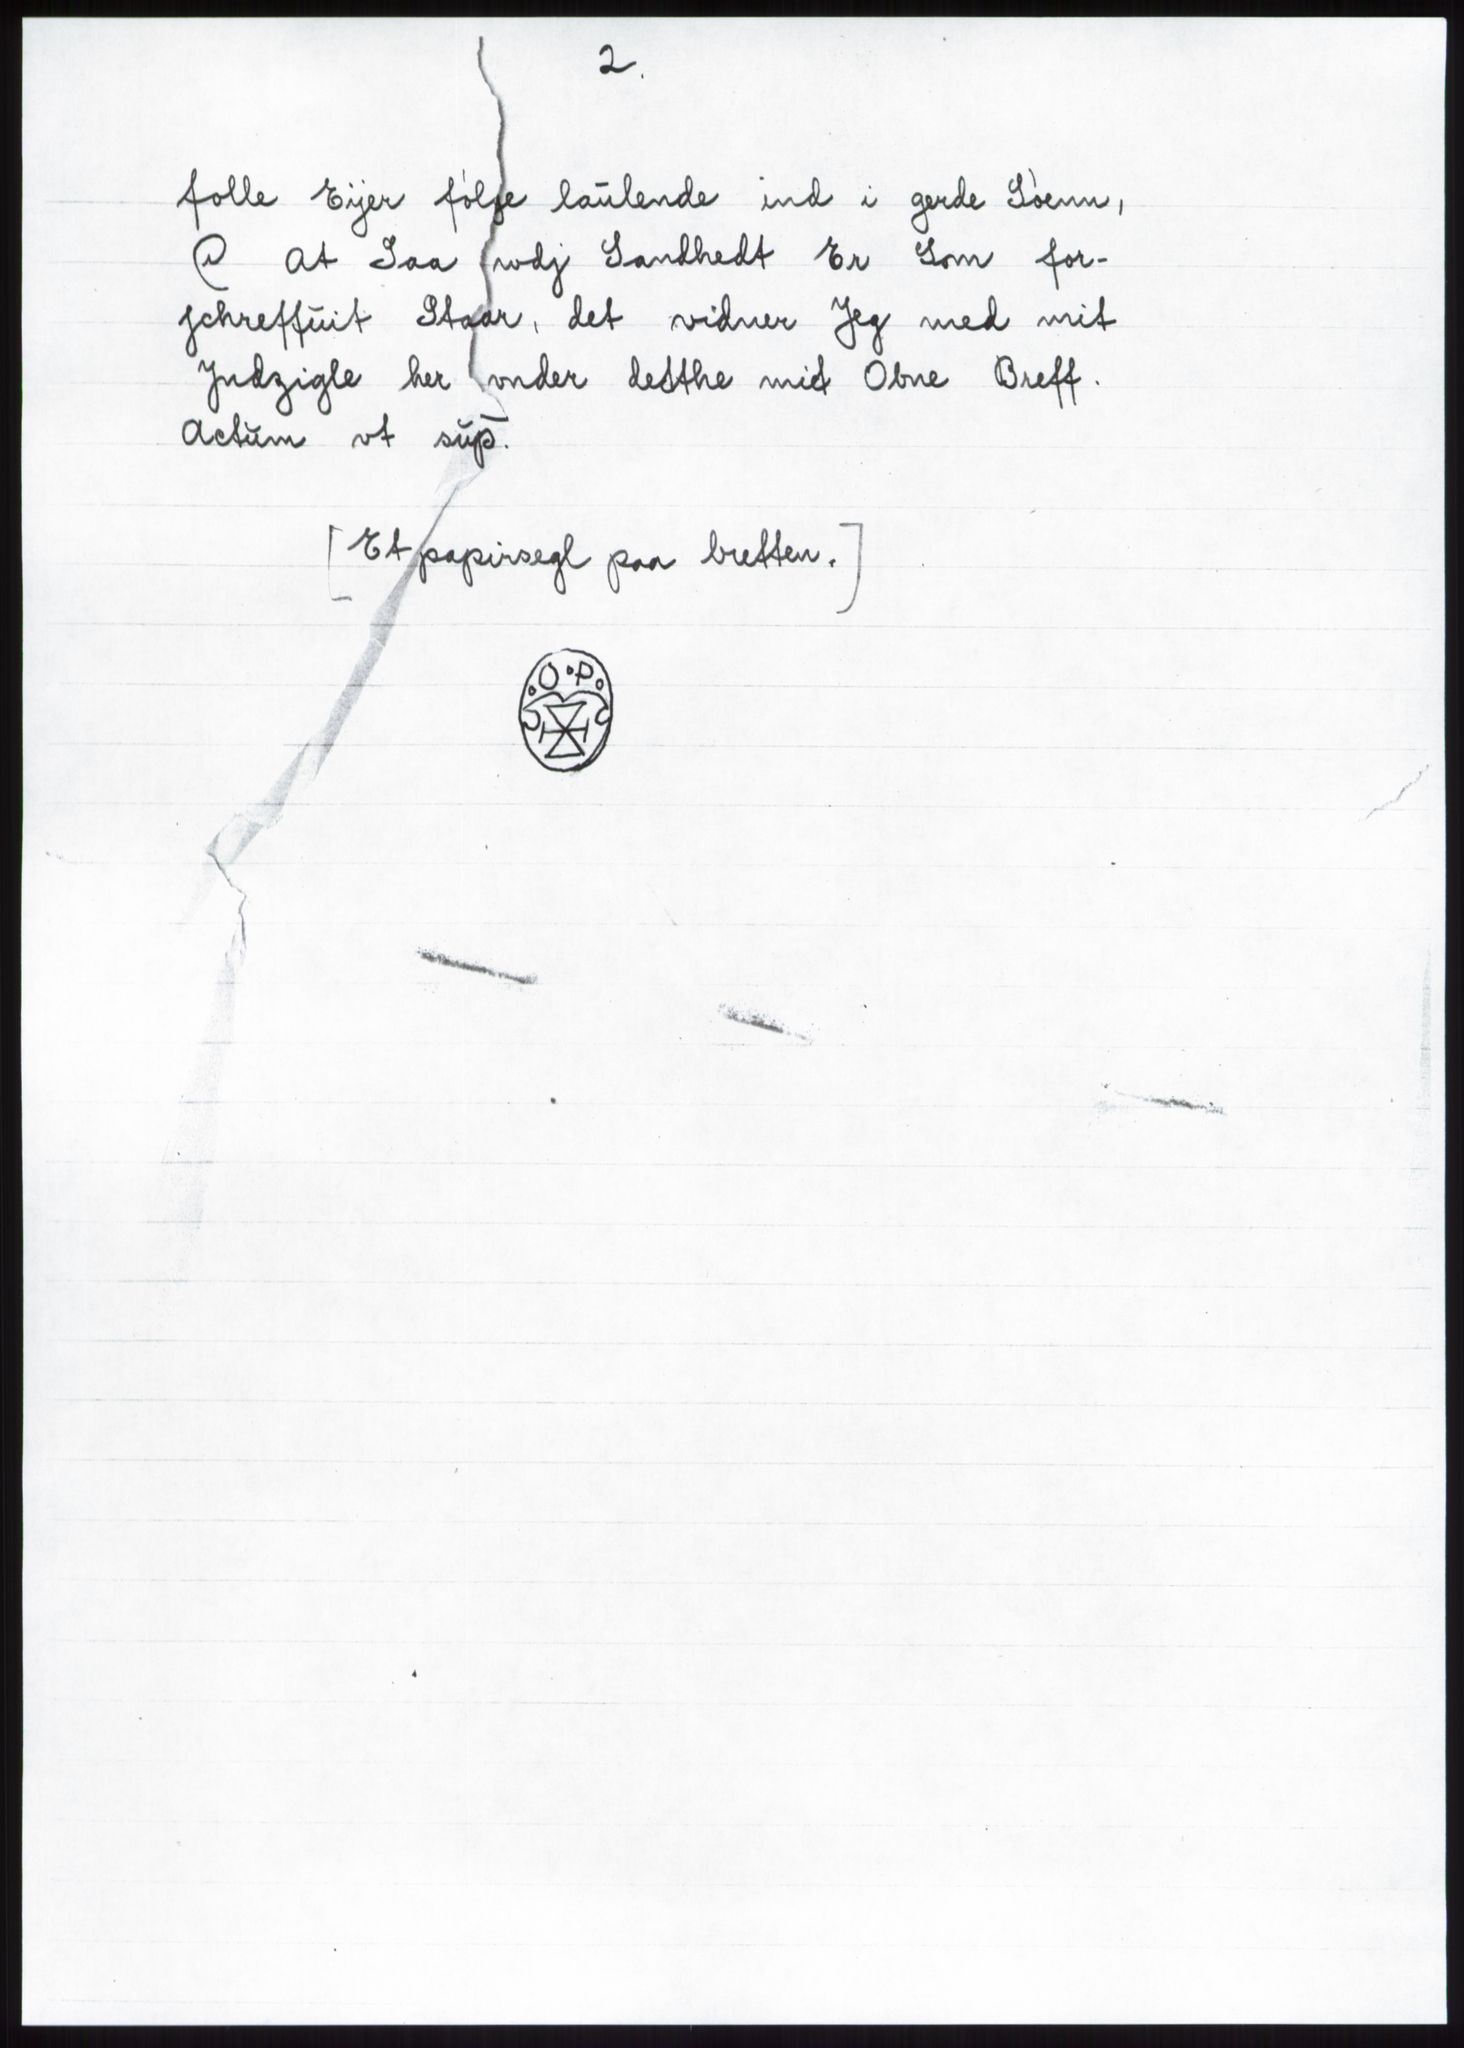 2.
folle Eijer følge laŭlende ind i gerde Söenn,
At Saa wdj Sandhedt Er Som for-
schreffŭit Staar, det vidner Jeg med mit
Jndzigle her vnder desthe mit Obne Breff.
Actŭm vt sŭp̄.
[Et papirsegl paa bretten.]
O P